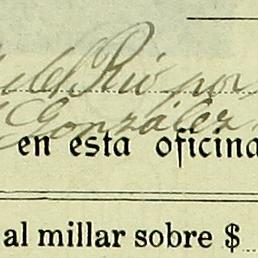 del Rio por
González
en esta oficina
al millar sobre $